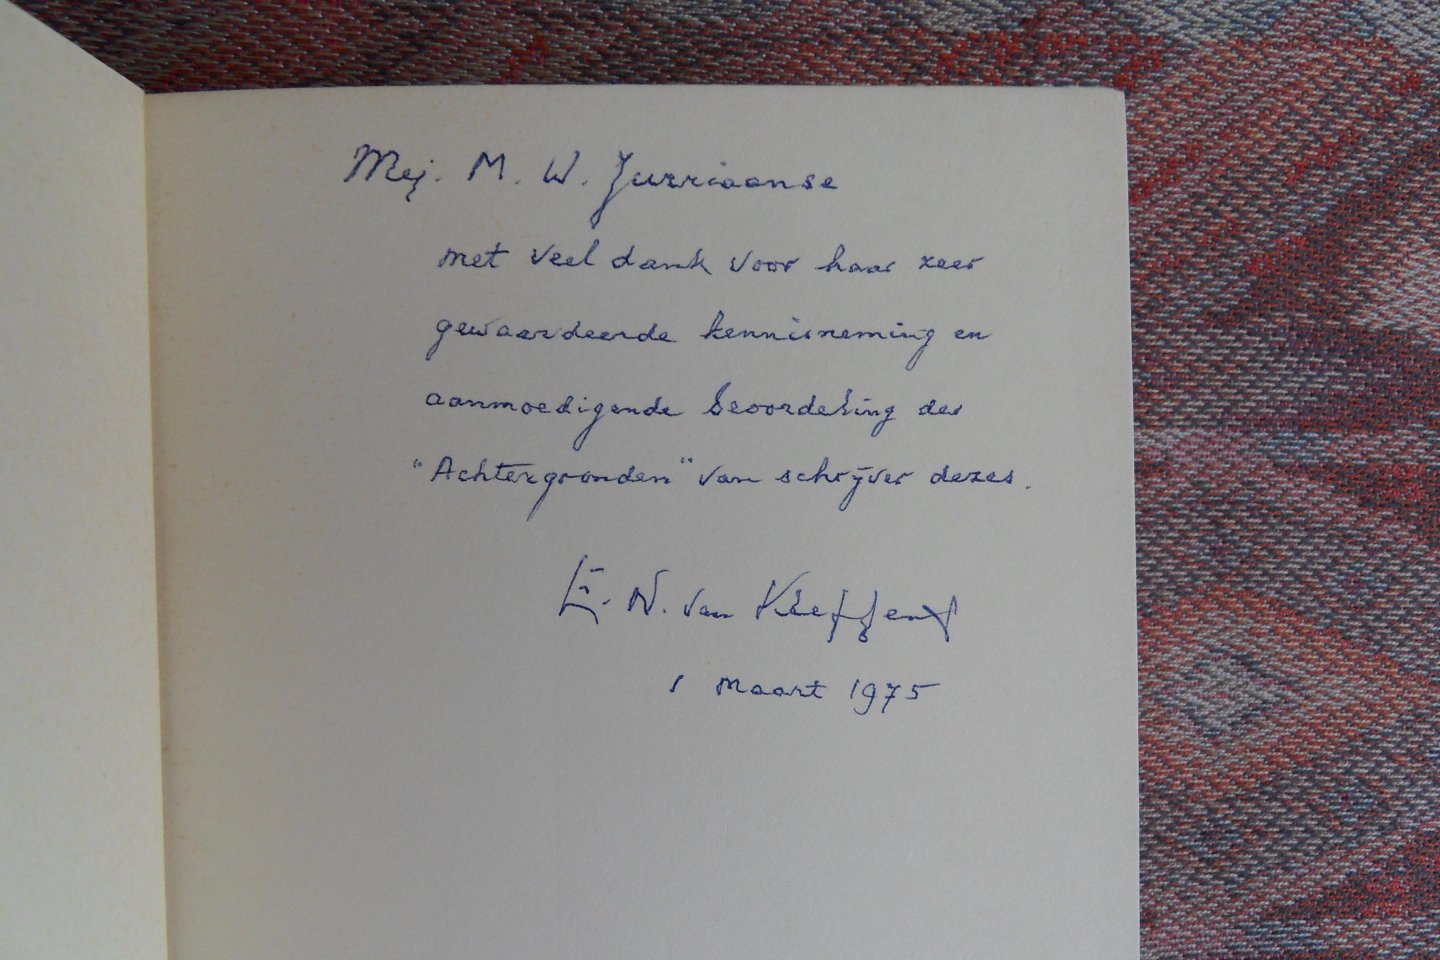 Mej. M. W. Jurriaanse
met veel dank voor haar zeer
gewaardeerde kennisneming en
aanmoedigende beoordeling der
"Achtergronden" van schrijver dezes.
E. N. van Kleffens
1 Maart 1975